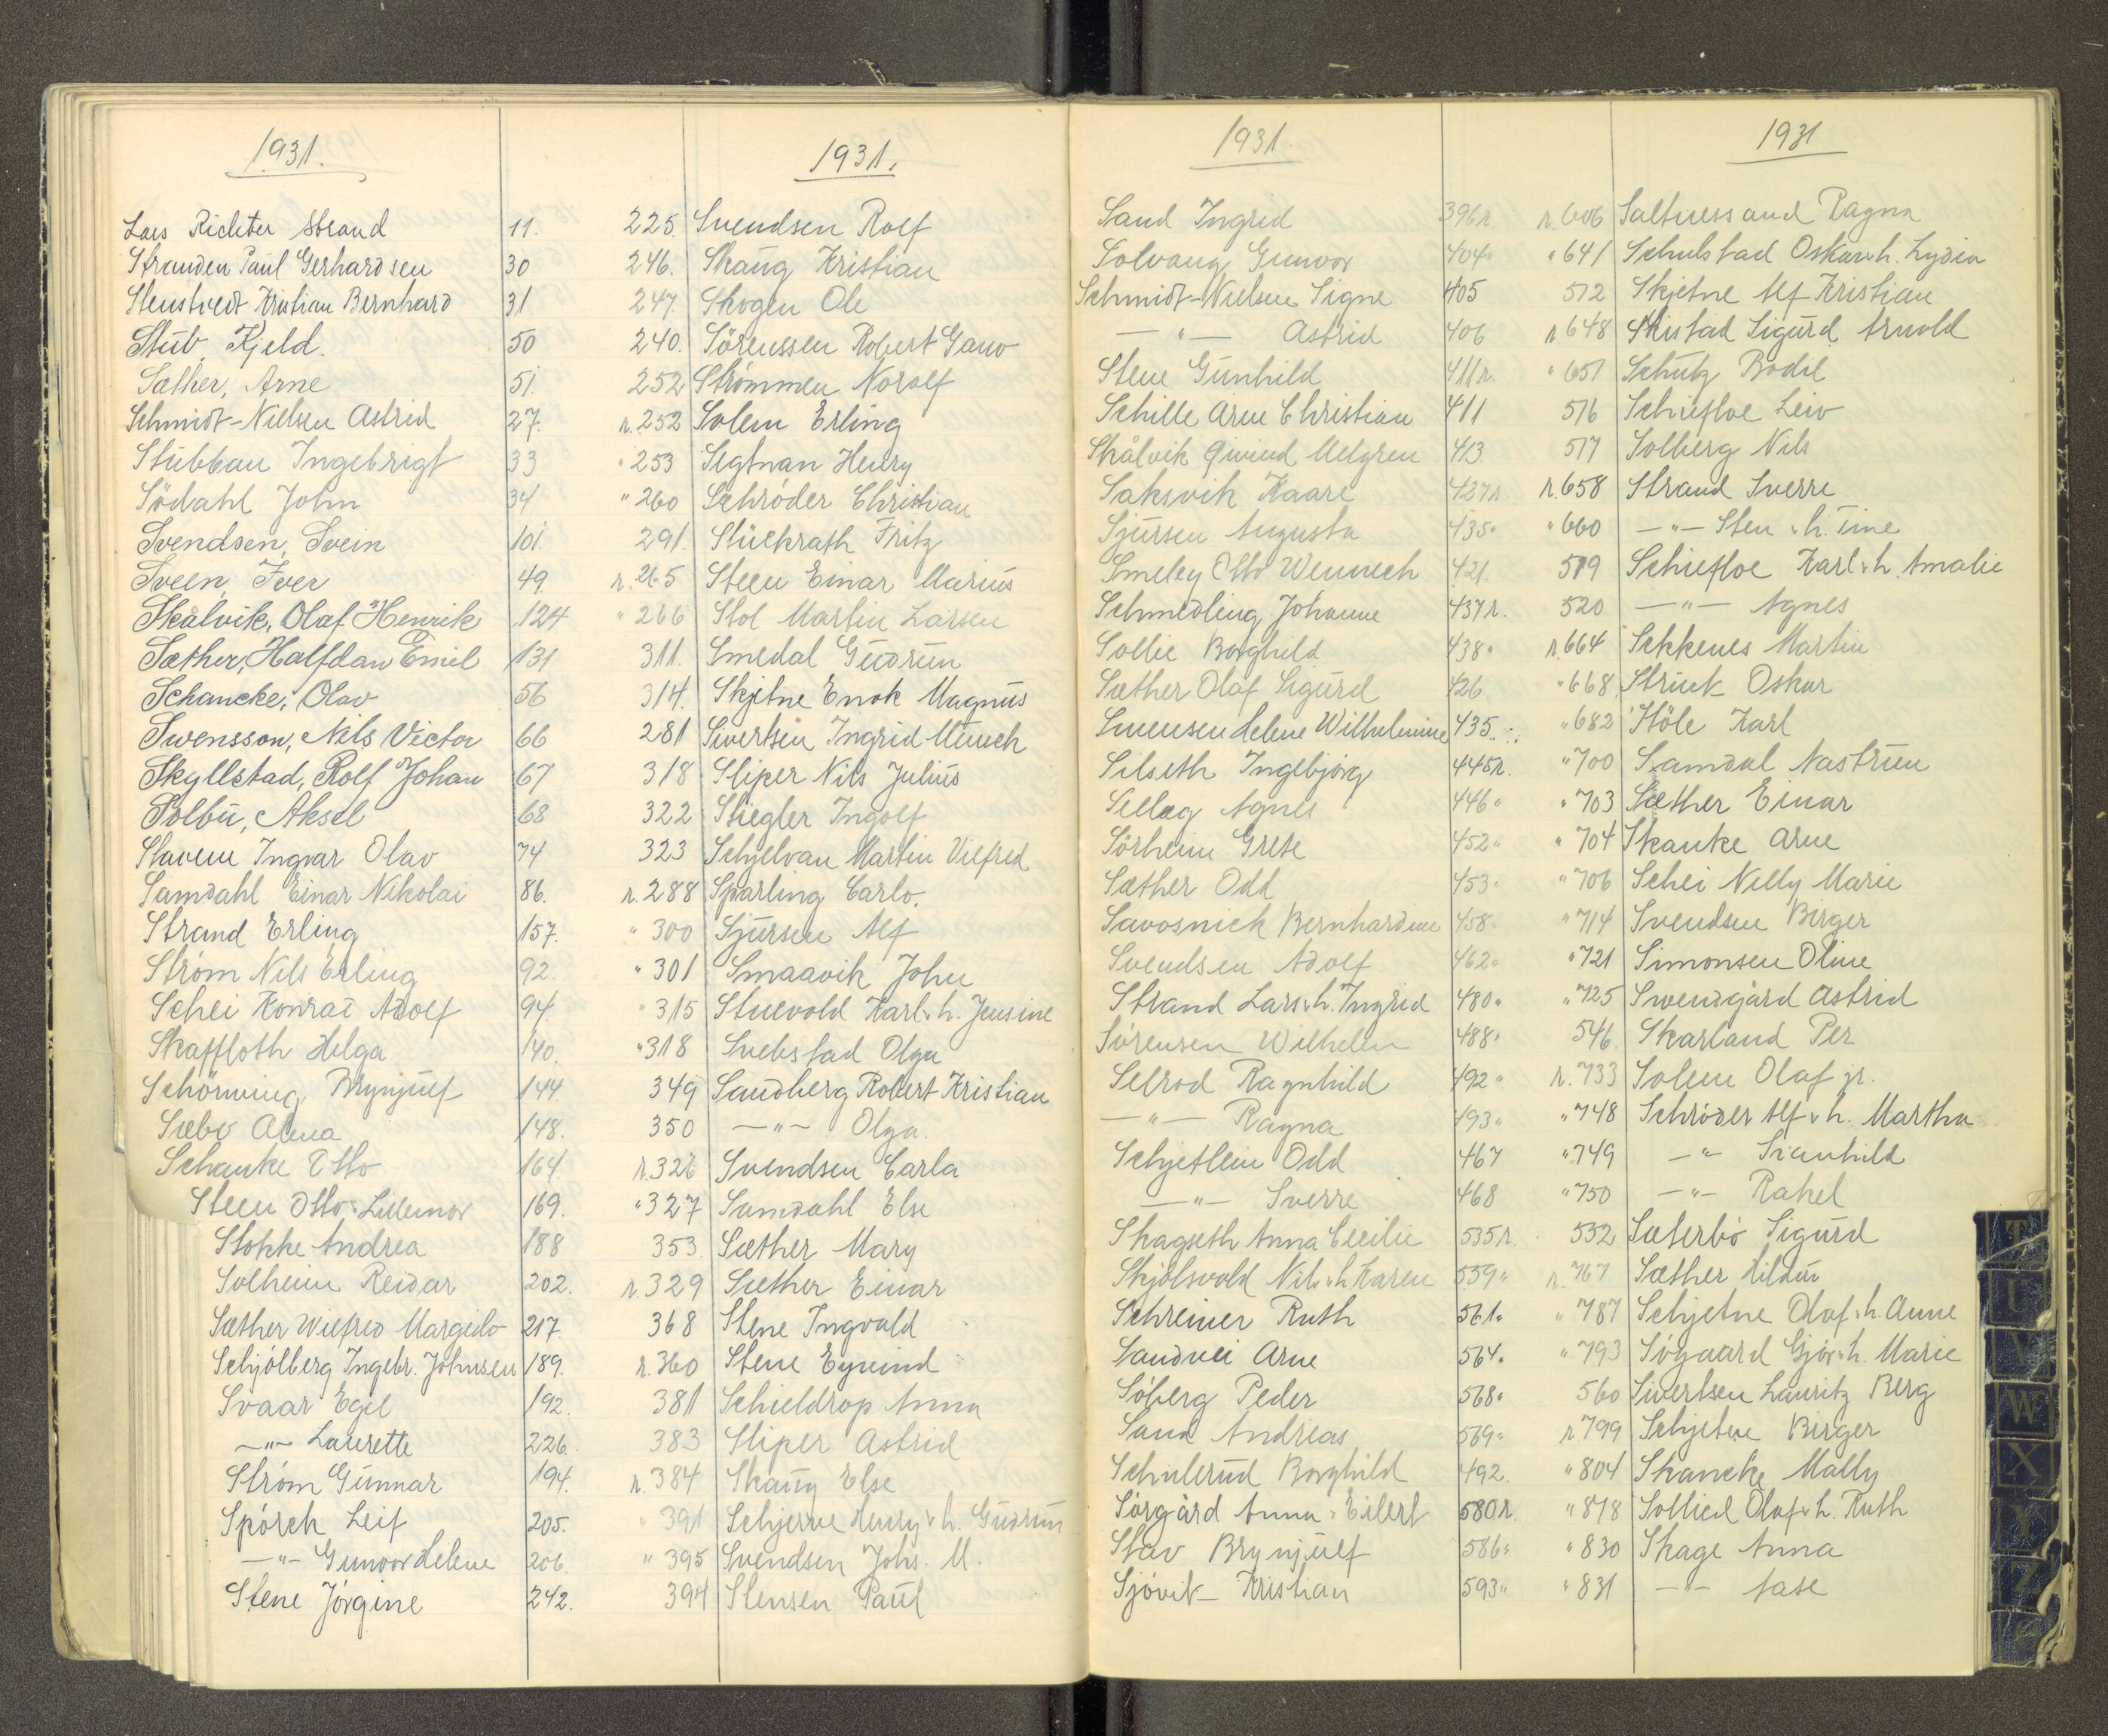 1931.
Lars Richter Strand 11.
Stranden Paul Gerhardsen 30
Stenstvedt Kristian Bernhard 31
Stub, Kjeld. 50
Sæther, Arne 51.
Schmidt-Nielsen Astrid 27.
Stubban Ingebrigt 33
Södahl John 34
Svendsen, Svein 101.
Sveen, Iver 49.
Skålvik, Olaf Henrik 124
Sæther, Halfdan Emil 131
Schancke, Olav 56
Swensson, Nils Victor 66
Skyllstad, Rolf Johan 67
Solbu, Aksel 68
Slavem Ingvar Olav 74
Samdahl Einar Nikolai 86.
Strand Erling 157.
Strøm Nils Erling 92.
Schei Konrad Adolf 94.
Skaffloth Helga 140.
Schönning Brynjulf 144.
Sæbø Alma 148.
Schanke Otto 164.
Steen Otto & Lillemor 169.
Stokke Andrea 188
Solheim Reidar 202.
Sæther Wilfred Margido 217.
Schjølberg Ingebr. Johnsen 189.
Svaar Egil 192.
—"— Laurette 226.
Strøm Gunnar 194.
Spørck Leif 205.
—"— Gunvor Helene 206.
Stene Jørgine 242.
1931.
225. Svendsen Rolf
246. Skaug Kristian
247. Skogen Ole
240. Sörenssen Robert Gawo
252 Strømmen Norolf
r. 252 Solem Erling
" 253 Segtnan Henry
" 260 Schrøder Christian
291. Stückrath Fritz
r. 265 Steen Einar Marius
" 266 Stol Martin Larsen
311. Smedal Gudrun
314. Skjetne Enok Magnus
281 Sivertsen Ingrid Munch
318 Sliper Nils Julius
322 Stiegler Ingolf
323 Schjelvan Martin Vilfred
r. 288 Sparling Carlo.
" 300 Sjursen Alf
" 301 Smaavik John
" 315 Stuevold Karl & h. Jensine
" 318 Svebstad Olga
349 Sandberg Robert Kristian
350 —"— Olga
r. 326 Svendsen Carla
" 327 Samdahl Else
353 Sæther Mary
r. 329 Sæther Einar
368 Stene Ingvald
r. 360 Stene Eyvind
381 Schieldrop Anna
383 Sliper Astrid
r. 384 Skaug Else
" 391 Schjerve Henry & h. Gudrun
" 395 Svendsen Johs. M.
394 Stensen Paul
1931.
Sand Ingrid 396 r.
Solvang Gunvor 404 "
Schmidt-Nielsen Signe 405
—"— Astrid 406
Stene Gunhild 411 r.
Schille Arne Christian 411
Skålvik Eivind Melgren 413
Saksvik Kaare 427 r
Sjursen Augusta 435 "
Smeby Otto Wennech 421.
Schmedling Johanne 437 r.
Sollie Borghild 438 "
Sæther Olaf Sigurd 426.
Smensen Helene Wilhelmine 435.
Silseth Ingebjørg 445 r.
Sellæg Agnes 446 "
Sørheim Grete 452 "
Sæther Odd 453 "
Savosnick Bernhardine 458 "
Svendsen Adolf 462 "
Strand Lars & h. Ingrid 480 "
Sørensen Wilhelm 488 "
Selrod Ragnhild 492 "
—"— Ragna 493 "
Schjetlein Odd 467
—"— Sverre 468
Skagseth Anna Cecilie 535 r.
Skjølsvold Nils & h. Karen 559 "
Schreiner Ruth 561 "
Sandvei Arne 564 "
Søberg Peder 568 "
Sand Andreas 569 "
Schulerud Borghild 492.
Sørgård Anna & Eilert 580 r.
Stav Brynjulf 586 "
Sjøvik Kristian 593 "
1931
r. 606 Saltnessand Ragna
" 641 Schulstad Oskar & h. Lydia
512 Skjetne Alf Kristian
r. 648 Skistad Sigurd Arnold
" 651 Schutz Bodil
516 Schiefloe Leiv
517 Solberg Nils
r. 658 Strand Sverre
" 660 —"— Sten & h. Tine
519 Schiefloe Karl & h. Amalie
520 —"— Agnes
r. 664 Sekkenes Martin
" 668 Struck Oskar
" 682 Støle Karl
" 700 Samdal Aastrun
" 703 Sæther Einar
" 704 Skanke Arne
" 706 Schei Nelly Marie
" 714 Svendsen Birger
" 721 Simonsen Oline
" 725 Svendgård Astrid
546. Skarland Per
r. 733 Solem Olaf jr.
" 748 Schrøder Alf & h. Martha
" 749 —"— Svanhild
" 750 —"— Rakel
552 Sæterbø Sigurd
r. 767 Sæther Hildur
" 787 Schjetne Olaf & h. Anne
" 793 Søgaard Gjør & h. Marie
560 Sivertsen Lauritz Berg
r. 799 Schjetne Birger
" 804 Skancke Mally
" 818 Sollied Olaf & h. Ruth
" 830 Skage Anna
" 831 —"— Aase
T
U
V
W
X
Y
Z